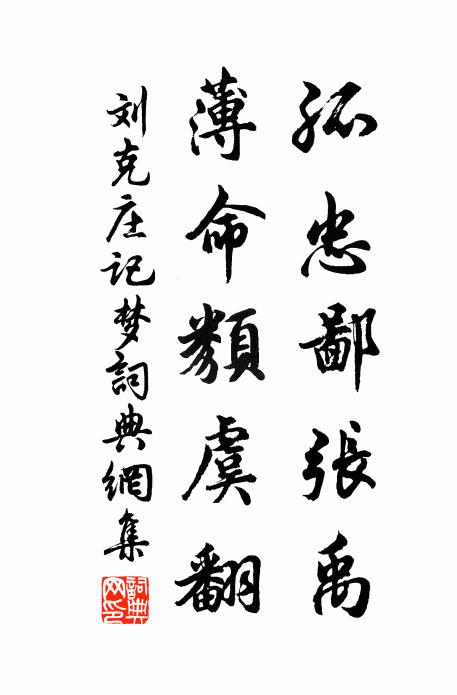 孤忠鄙張禹
薄命類虞翻
刘克庄记梦詞典網集
詞典网印